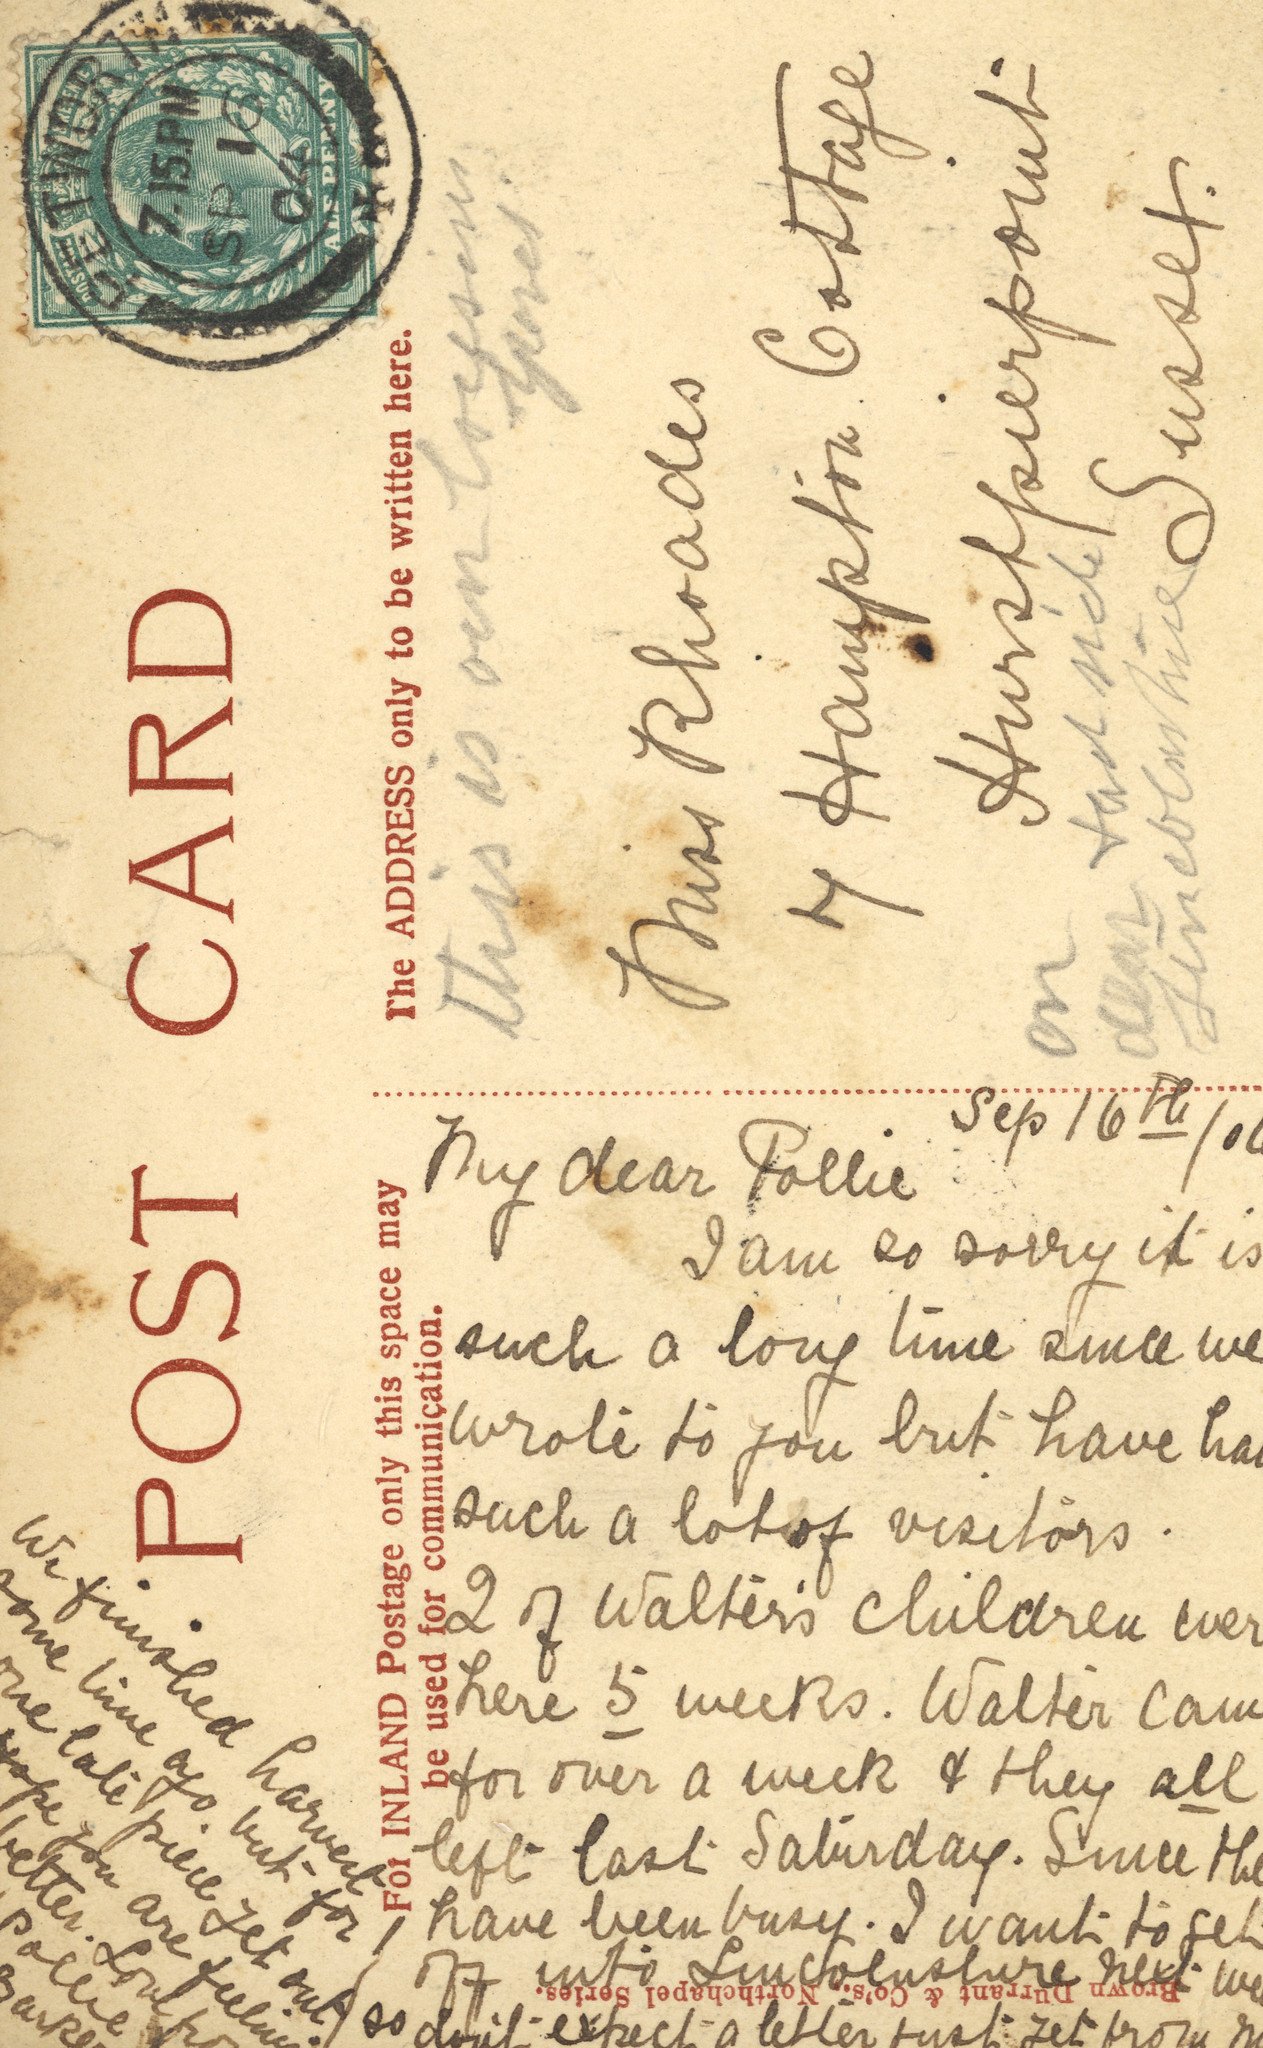 POST CARD
For INLAND Postage only this space may
be used for communication.
The ADDRESS only to be written here.
7.15PM
SP 16
04
this is our
Miss Rhoades
7 Hampton Cottage
Hurstpierpoint
Sussex.
on
dear
Sep 16th/04
My dear Pollie
I am so sorry it is
such a long time since we
wrote to you but have had
such a lot of visitors.
2 of Walter's children wer
here 5 weeks. Walter cam
for over a week & they all
left last Saturday. Since the
have been busy. I want to get
off into Lincolnshire next we
so don't expect a letter just yet from
We finished harvest
some time ago. but for
one late piece yet out
hope you are feeling
better. Love from
Pollie
Barker
Brown Dürrant & Co's., Northchapel Series.